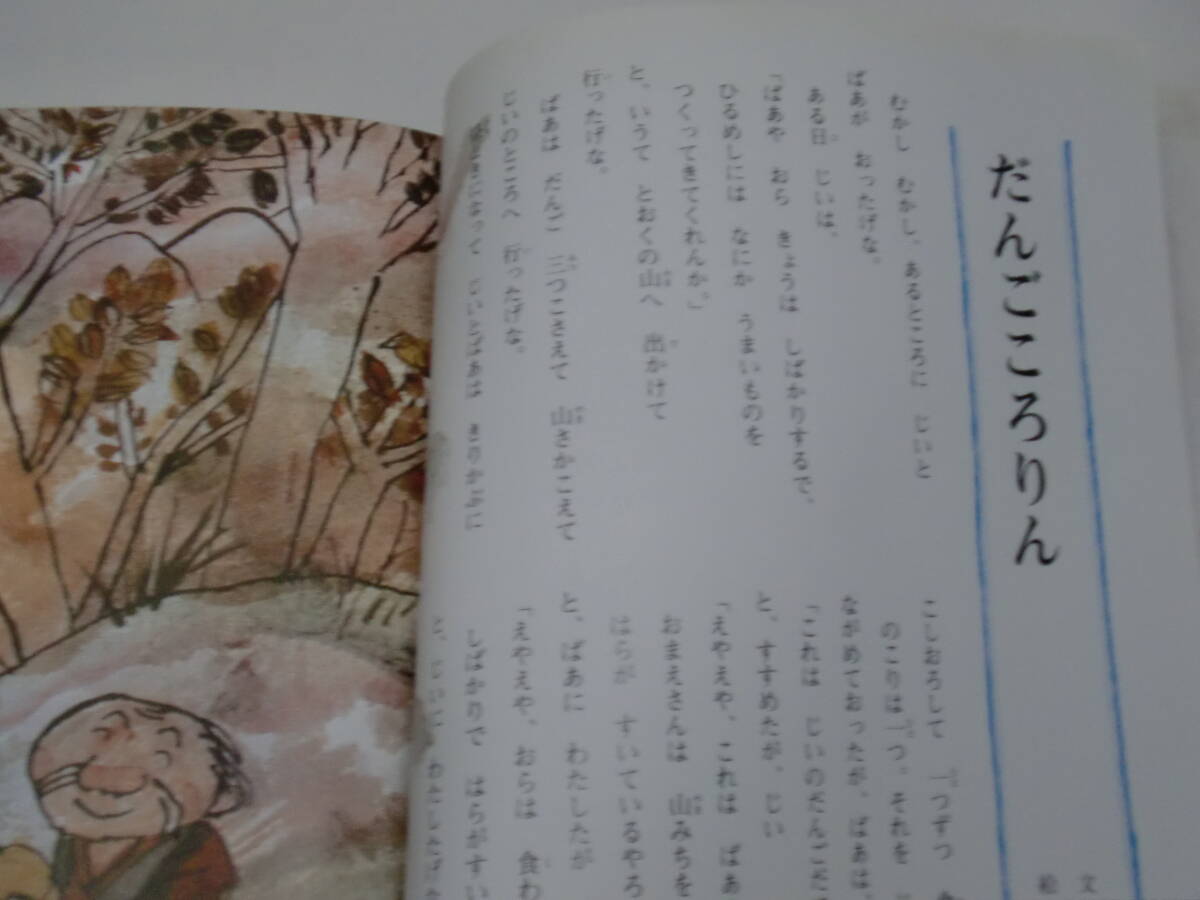 だんごころりん
文
絵
むかし むかし、あるところに じいと
ばあが おったげな。
ある日 じいは、
「ばあや おら きょうは しばかりするで、
ひるめしには なにか うまいものを
つくってきてくれんか。」
と、いうて とおくの山へ 出かけて
行ったげな。
ばあは だんご 三つこさえて 山さかこえて
じいのところへ 行ったげな。
になって じいとばあは きりかぶに
こしおろして 一つずつ
のこりは一つ。それを
ながめておったが、ばあは、
「これは じいのだんごだ
と、すすめたが、じい
「えやえや、これは ばあ
おまえさんは 山みちを
はらが すいているやろ
と、ばあに わたしたが
「えやえや、おらは 食わ
しばかりで はらがすい
と、じいに わたしたげな